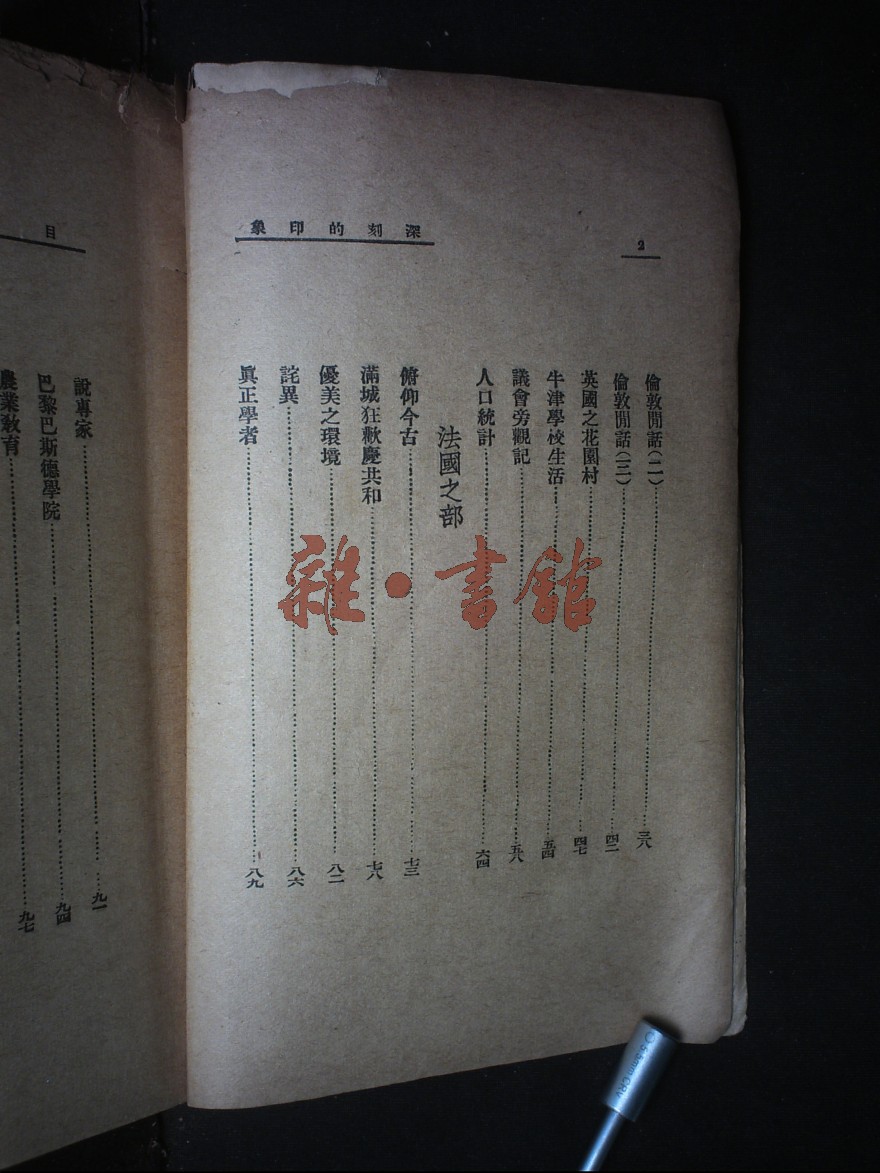 2
深刻的印象
倫敦閒話(二)……三八
倫敦閒話(三)……四二
英國之花園村……四七
牛津學校生活……五四
議會旁觀記……五八
人口統計……六四
法國之部
俯仰今古……七三
滿城狂歡慶共和……七八
優美之環境……八二
詫異……八六
真正學者……八九
目
說專家……九一
巴黎巴斯德學院……九四
農業教育……九七
雜·書館
5.5mm CRV